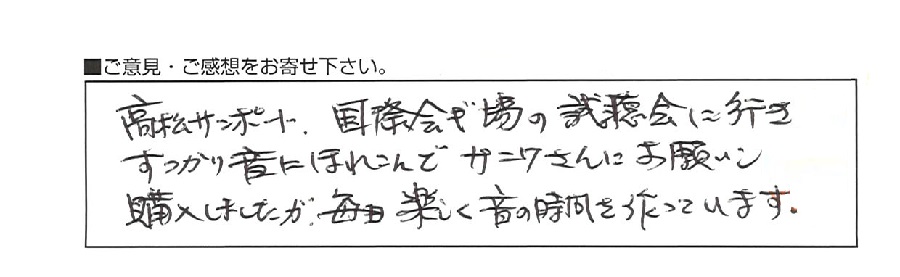 ■ご意見・ご感想をお寄せ下さい。
高松サンポート、国際会ギ場の試聴会に行き
すっかり音にほれこんで サニワさんにお願いし
購入しましたが、毎日楽しく音の時間を作っています。